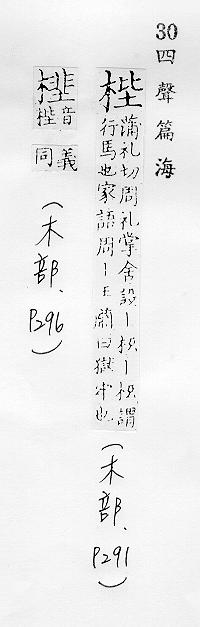 30四聲篇海
梐
蒲礼切周礼掌舍設丨枑丨枑謂
行馬也家語周丨王肅曰獄牢也
(木部、P291)
音義
梐同
(木部、P296)